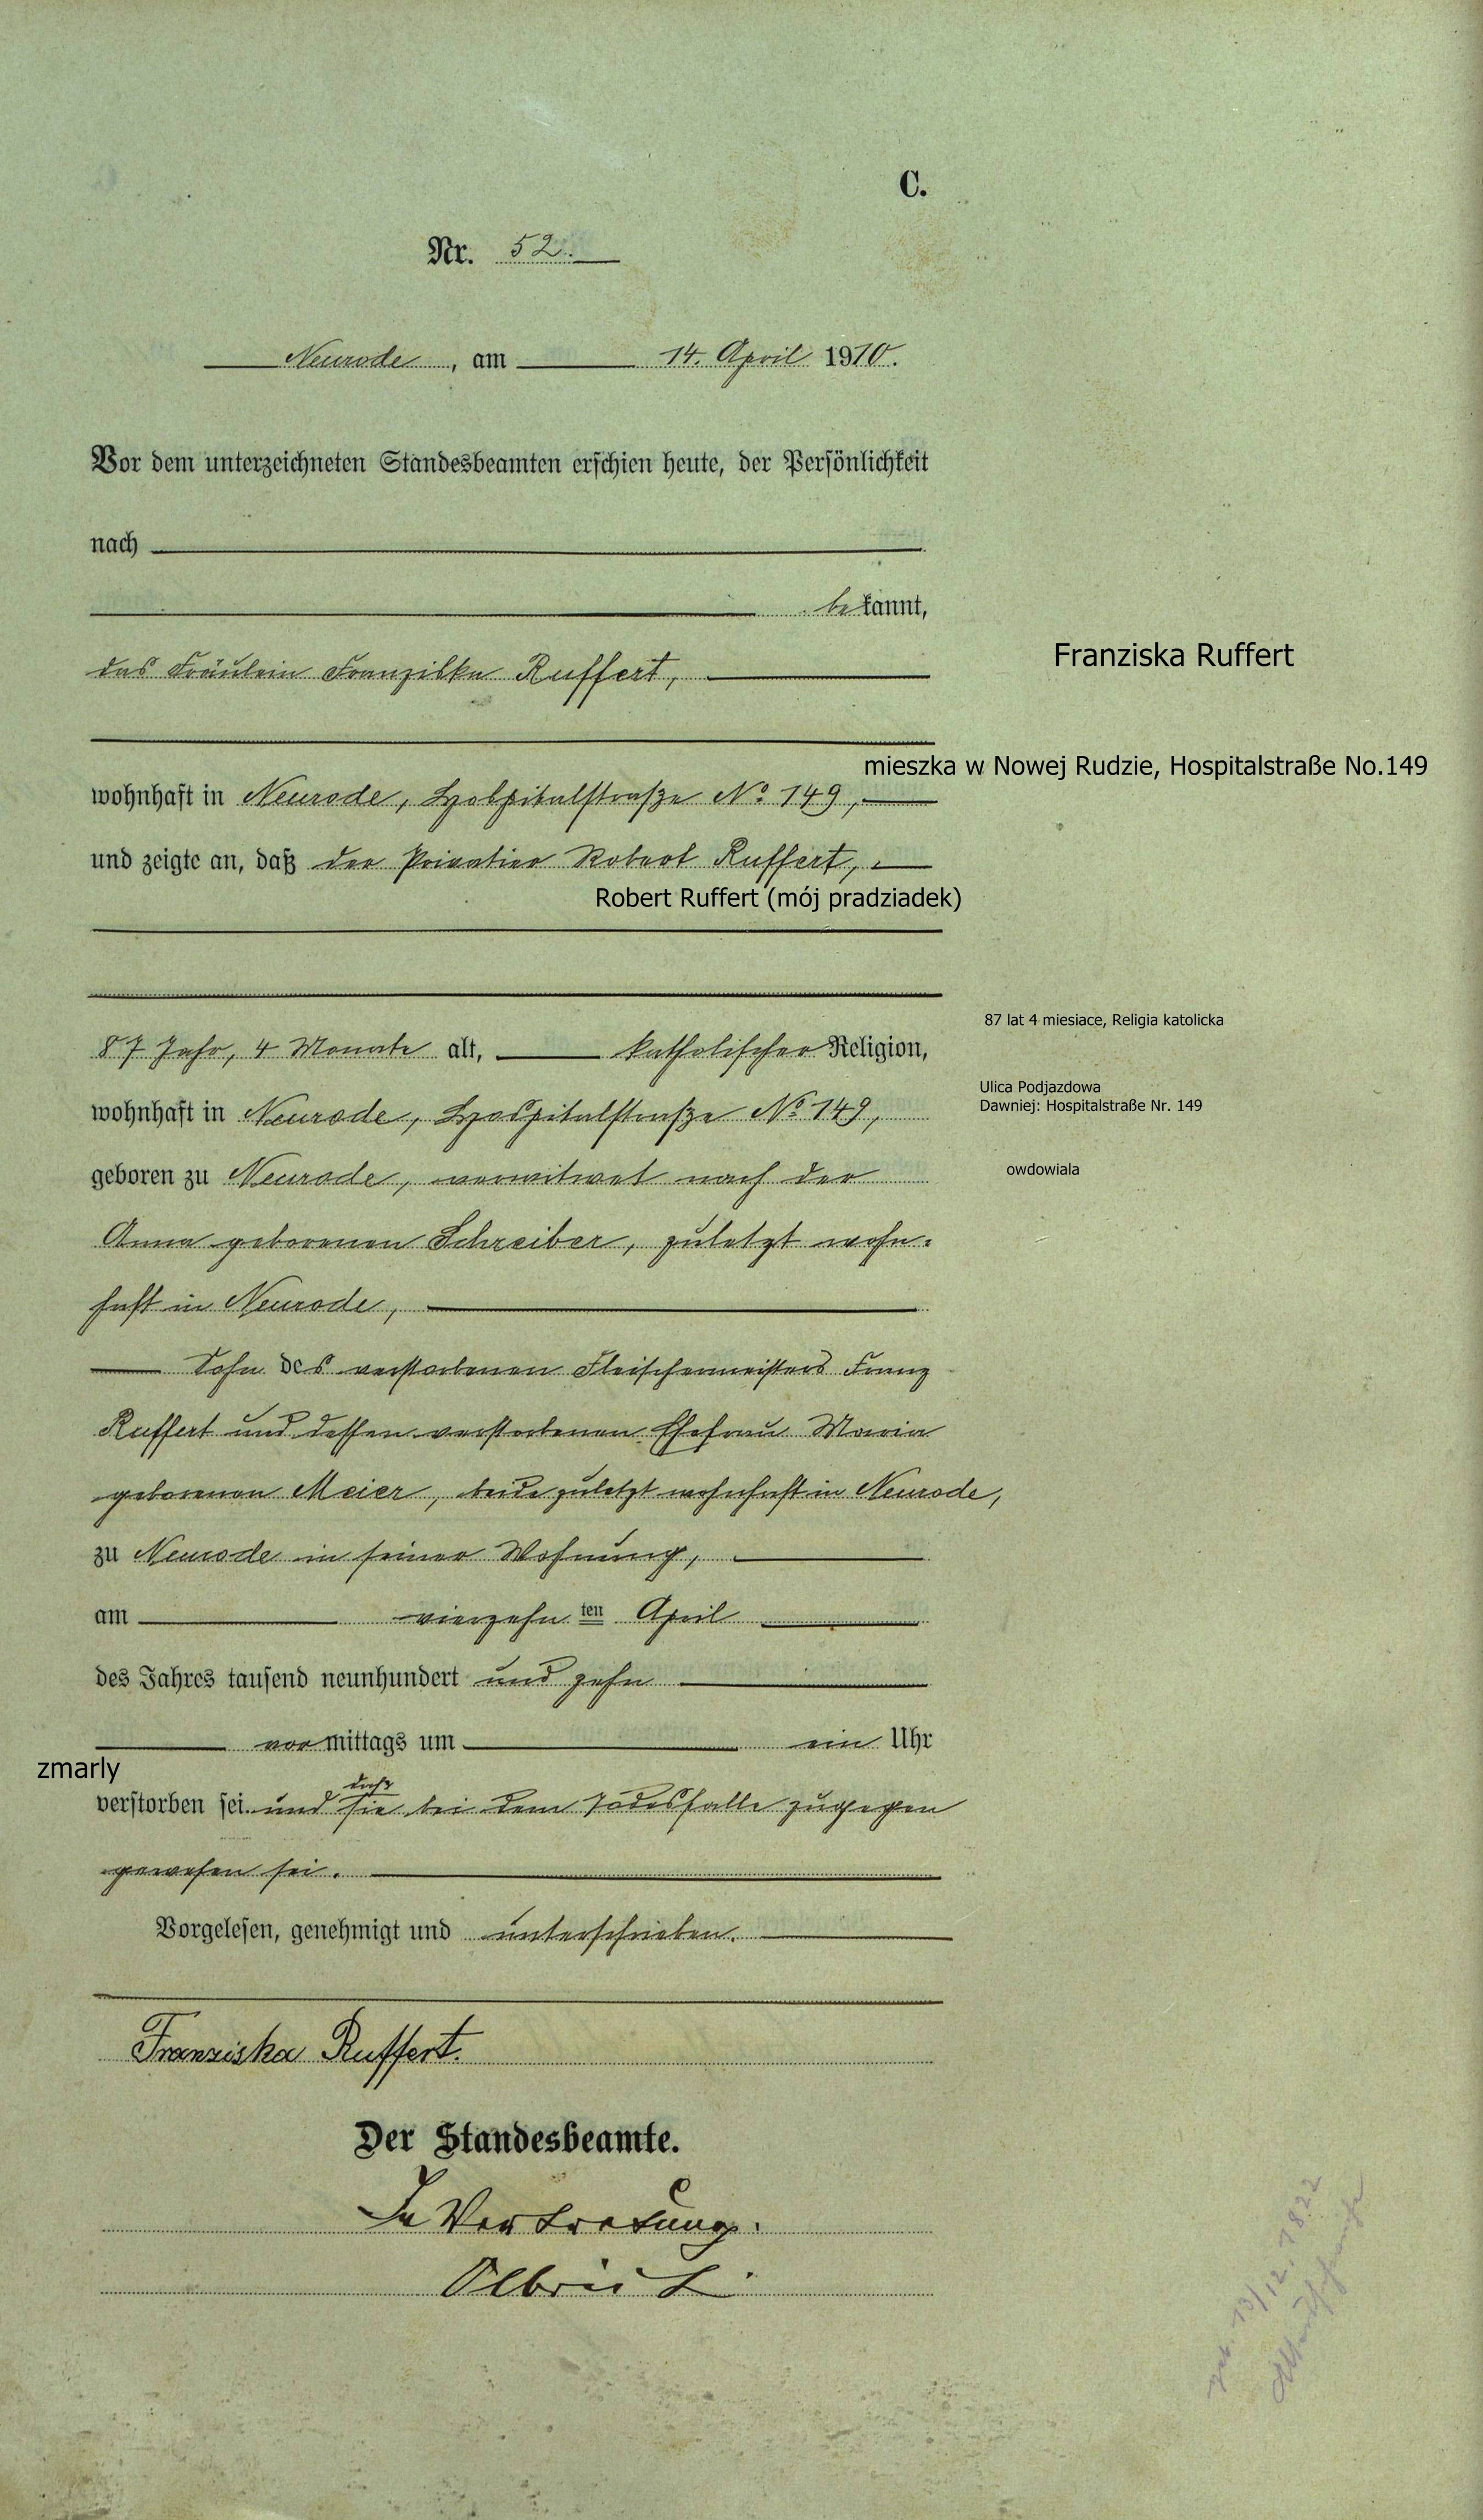 C.
Nr. 52.
Neurode, am 14. April 1910.
Vor dem unterzeichneten Standesbeamten erschien heute, der Persönlichkeit
nach
bekannt,
das Fräulein Franziska Ruffert,
Franziska Ruffert
mieszka w Nowej Rudzie, Hospitalstraße No.149
wohnhaft in Neurode, Hospitalstraße No 149,
und zeigte an, daß der Privatier Robert Ruffert,
Robert Ruffert (mój pradziadek)
87 lat 4 miesiace, Religia katolicka
87 Jahr, 4 Monate alt, katholischer Religion,
Ulica Podjazdowa
Dawniej: Hospitalstraße Nr. 149
wohnhaft in Neurode, Hospitalstraße No 149,
geboren zu Neurode, verwitwet nach der
owdowiala
Anna geborenen Schreiber, zuletzt wohn-
haft in Neurode,
Sohn des verstorbenen Fleischermeisters Franz
Ruffert und dessen verstorbenen Ehefrau Maria
geborenen Meier, beide zuletzt wohnhaft in Neurode,
zu Neurode in seiner Wohnung,
am vierzehnten April
des Jahres tausend neunhundert und zehn
vormittags um ein Uhr
zmarly
daß
verstorben sei und sie bei dem Todesfalle zugegen
gewesen sei.
Vorgelesen, genehmigt und unterschrieben.
Franziska Ruffert.
Der Standesbeamte.
In Vertretung.
geb. 13/12. 1822